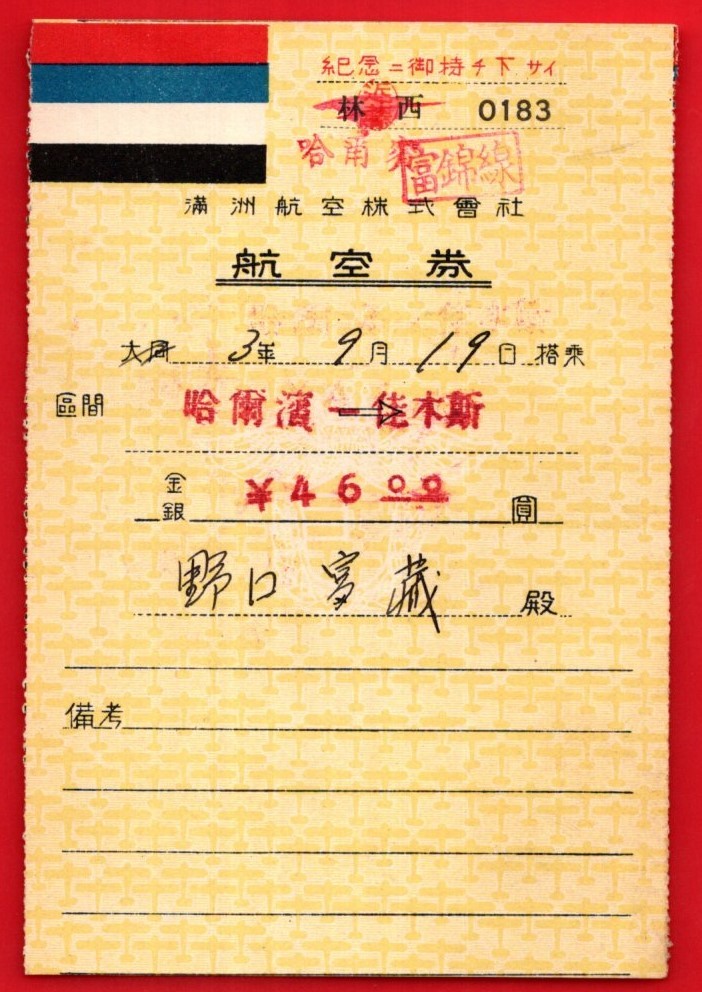 紀念ニ御持チ下サイ
林西 0183
哈爾濱
富錦線
滿洲航空株式會社
航空券
大同 3年 9月 19日 搭乘
區間 哈爾濱→佳木斯
金銀 ¥4600 圓
野口富藏 殿
備考